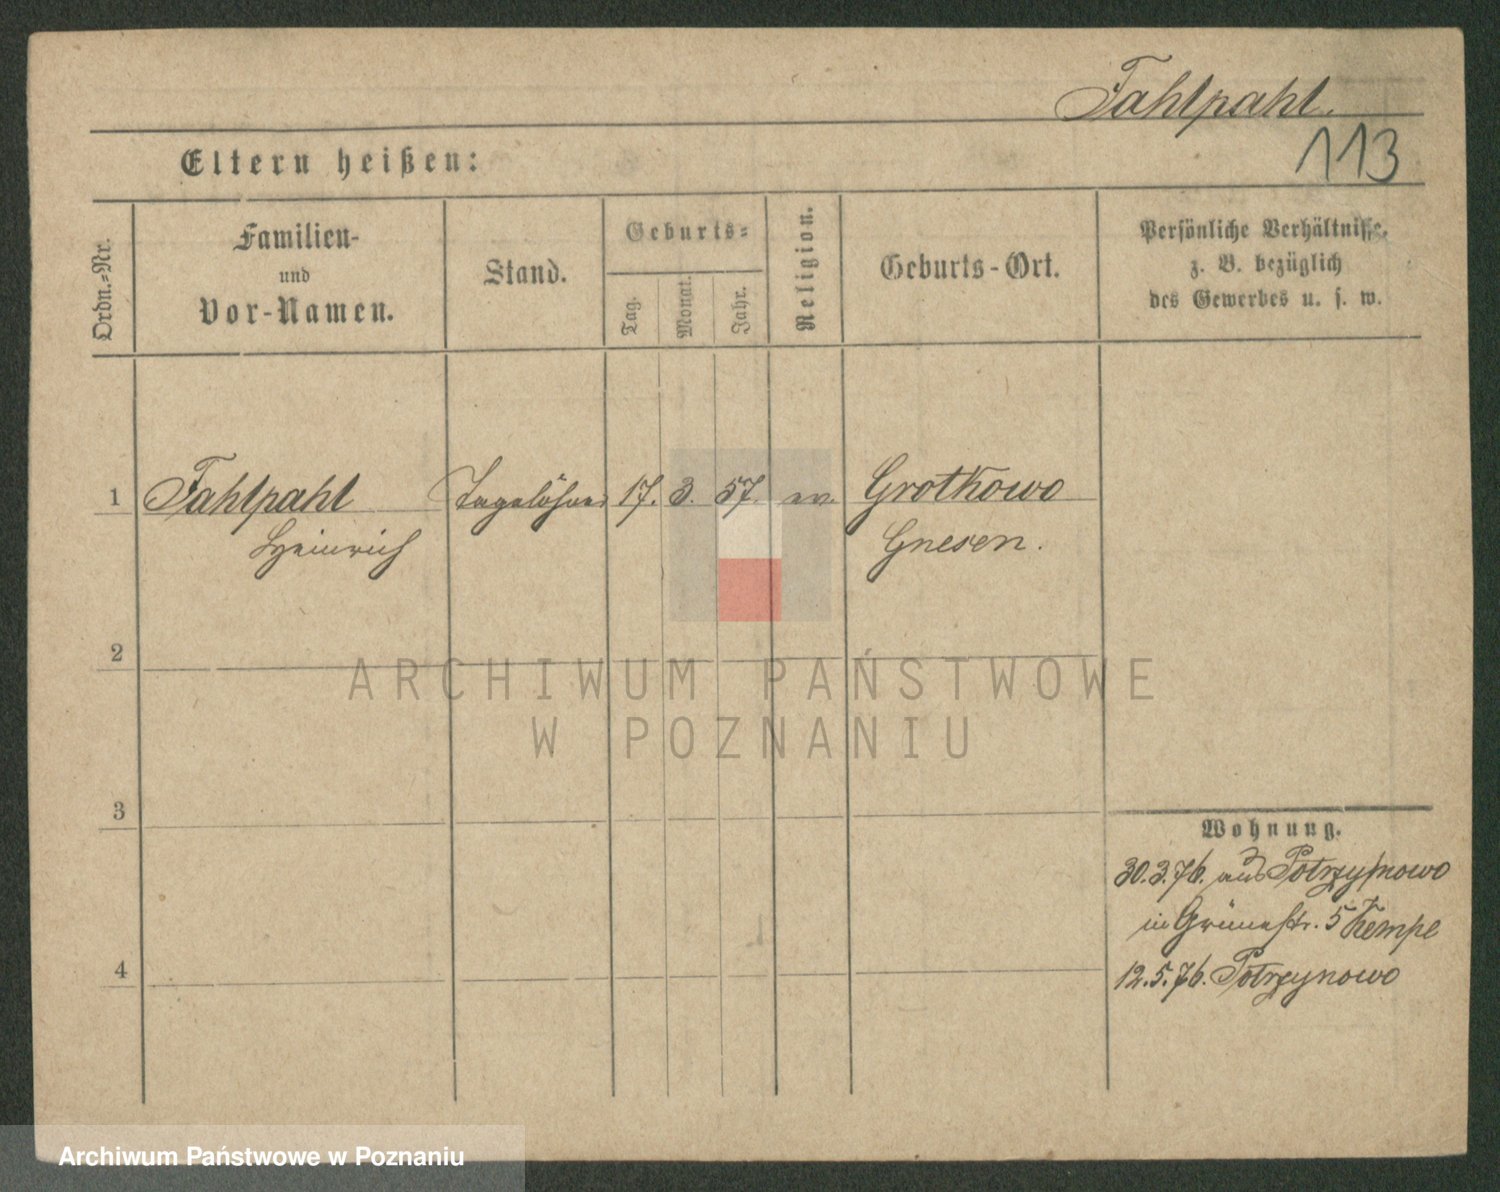 Fahlpahl.
113
Eltern heißen:
Ordn.-Nr.
Familien-
und
Vor-Namen.
Stand.
Geburts-
Tag.
Monat.
Jahr.
Religion.
Geburts-Ort.
Persönliche Verhältnisse,
z. B. bezüglich
des Gewerbes u. s. w.
1 Fahlpahl Tagelöhner 17. 3. 57. ev. Grotkowo
Heinrich Gnesen.
2
ARCHIWUM PAŃSTWOWE
W POZNANIU
3
Wohnung.
30.3.76. aus
in Grünestr. 5 Kempe
4
12.5.76. Potrzynowo
Archiwum Państwowe w Poznaniu